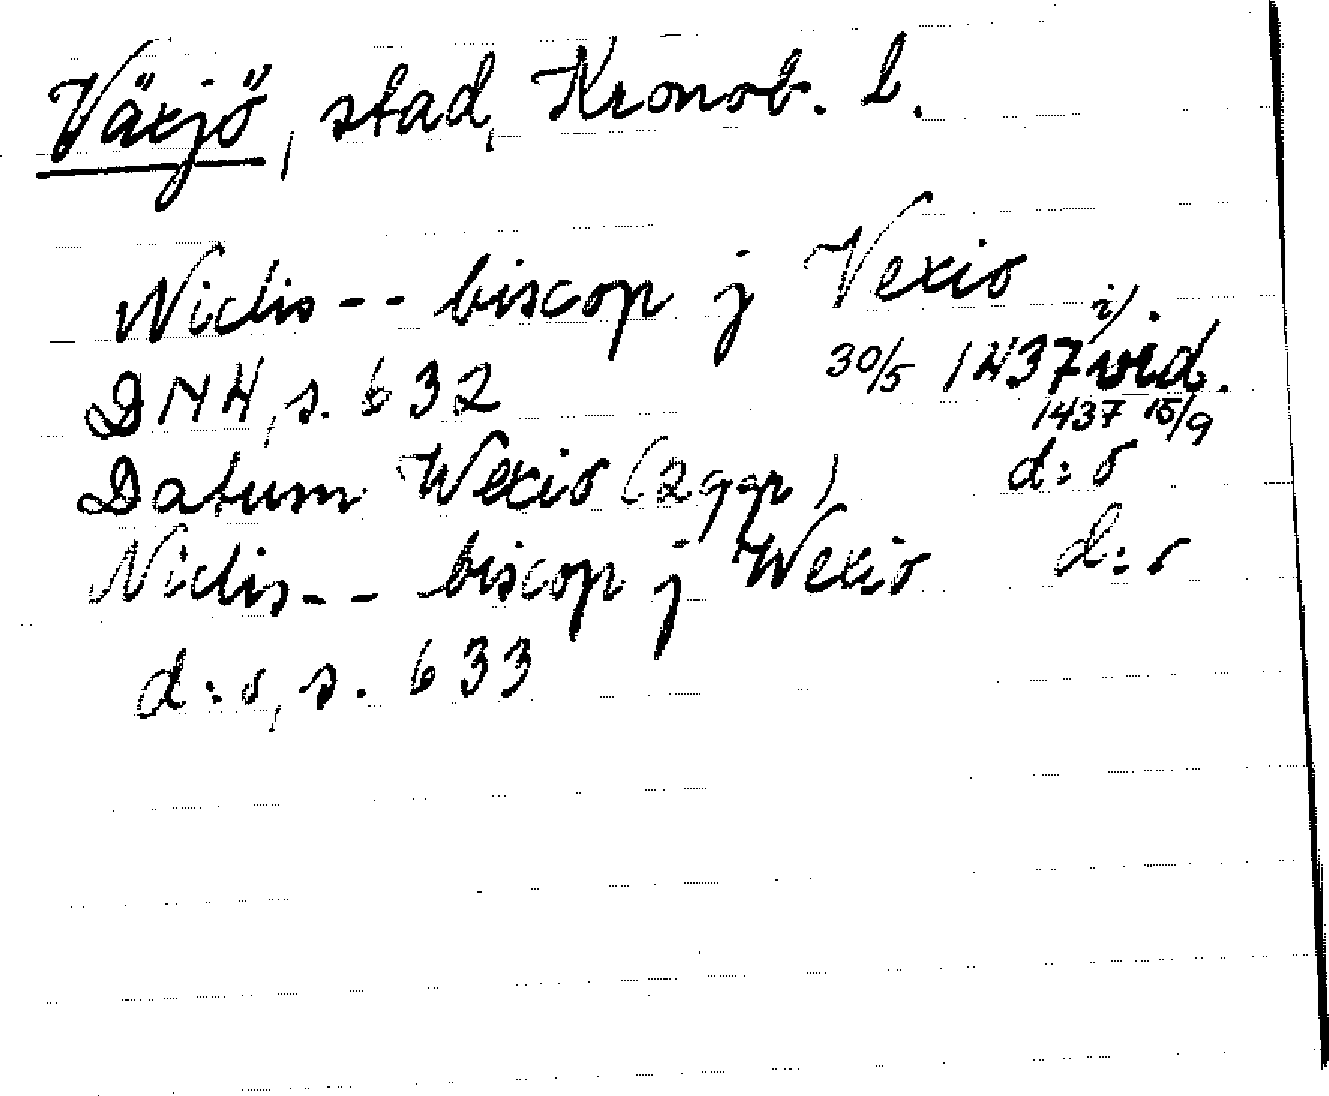 Växjö, stad, Kronob. l.
Niclis -- biscop j Vexio
DN 4, s. 632 30/5 1437 i) vid.
1437 15/9
Datum Wexio (2 ggr) d:o
Niclis -- biscop j Wexio d:o
d:o, s. 633